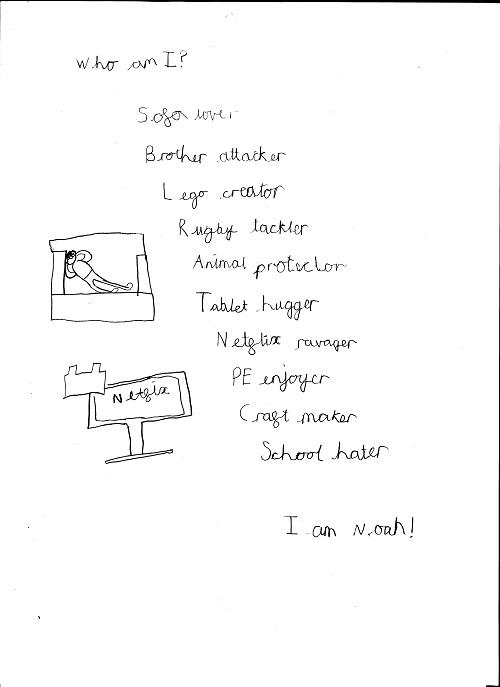 Who am I?
Sofa lover
Brother attacker
Lego creator
Rugby tackler
Animal protector
Tablet hugger
Netflix ravager
PE enjoyer
Netflix
Craft maker
School hater
I am Noah!